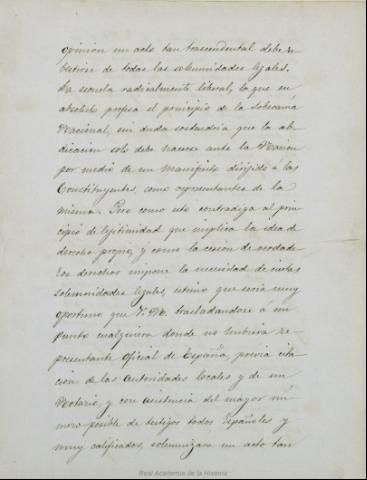 opinion un acto tan trascendental debe re-
bestirse de todas las solemnidades legales.
La escuela radicalmente liberal, la que en
absoluto profesa el principio de la Soberania
Nacional, sin duda sostendria que la ab-
dicacion solo debe hacerse ante la Nacion
por medio de un Manifiesto dirijido a las
Constituyentes, como representantes de la
misma. Pero como esto contradiga al prin-
cipio de lejitimidad que implica la idea de
derecho propio, y como la cesion de verdade-
ros derechos impone la necesidad de ciertas
solemnidades legales, estimo que seria muy
oportuno que V. M. trasladandose á un
punto cualquiera donde no hubiera re-
presentante oficial de España, previa cita-
cion de las Autoridades locales y de un
Notario, y con asistencia del mayor nú-
mero posible de testigos todos Españoles y
muy calificados, solemnizara un acto tan
Real Academia de la Historia